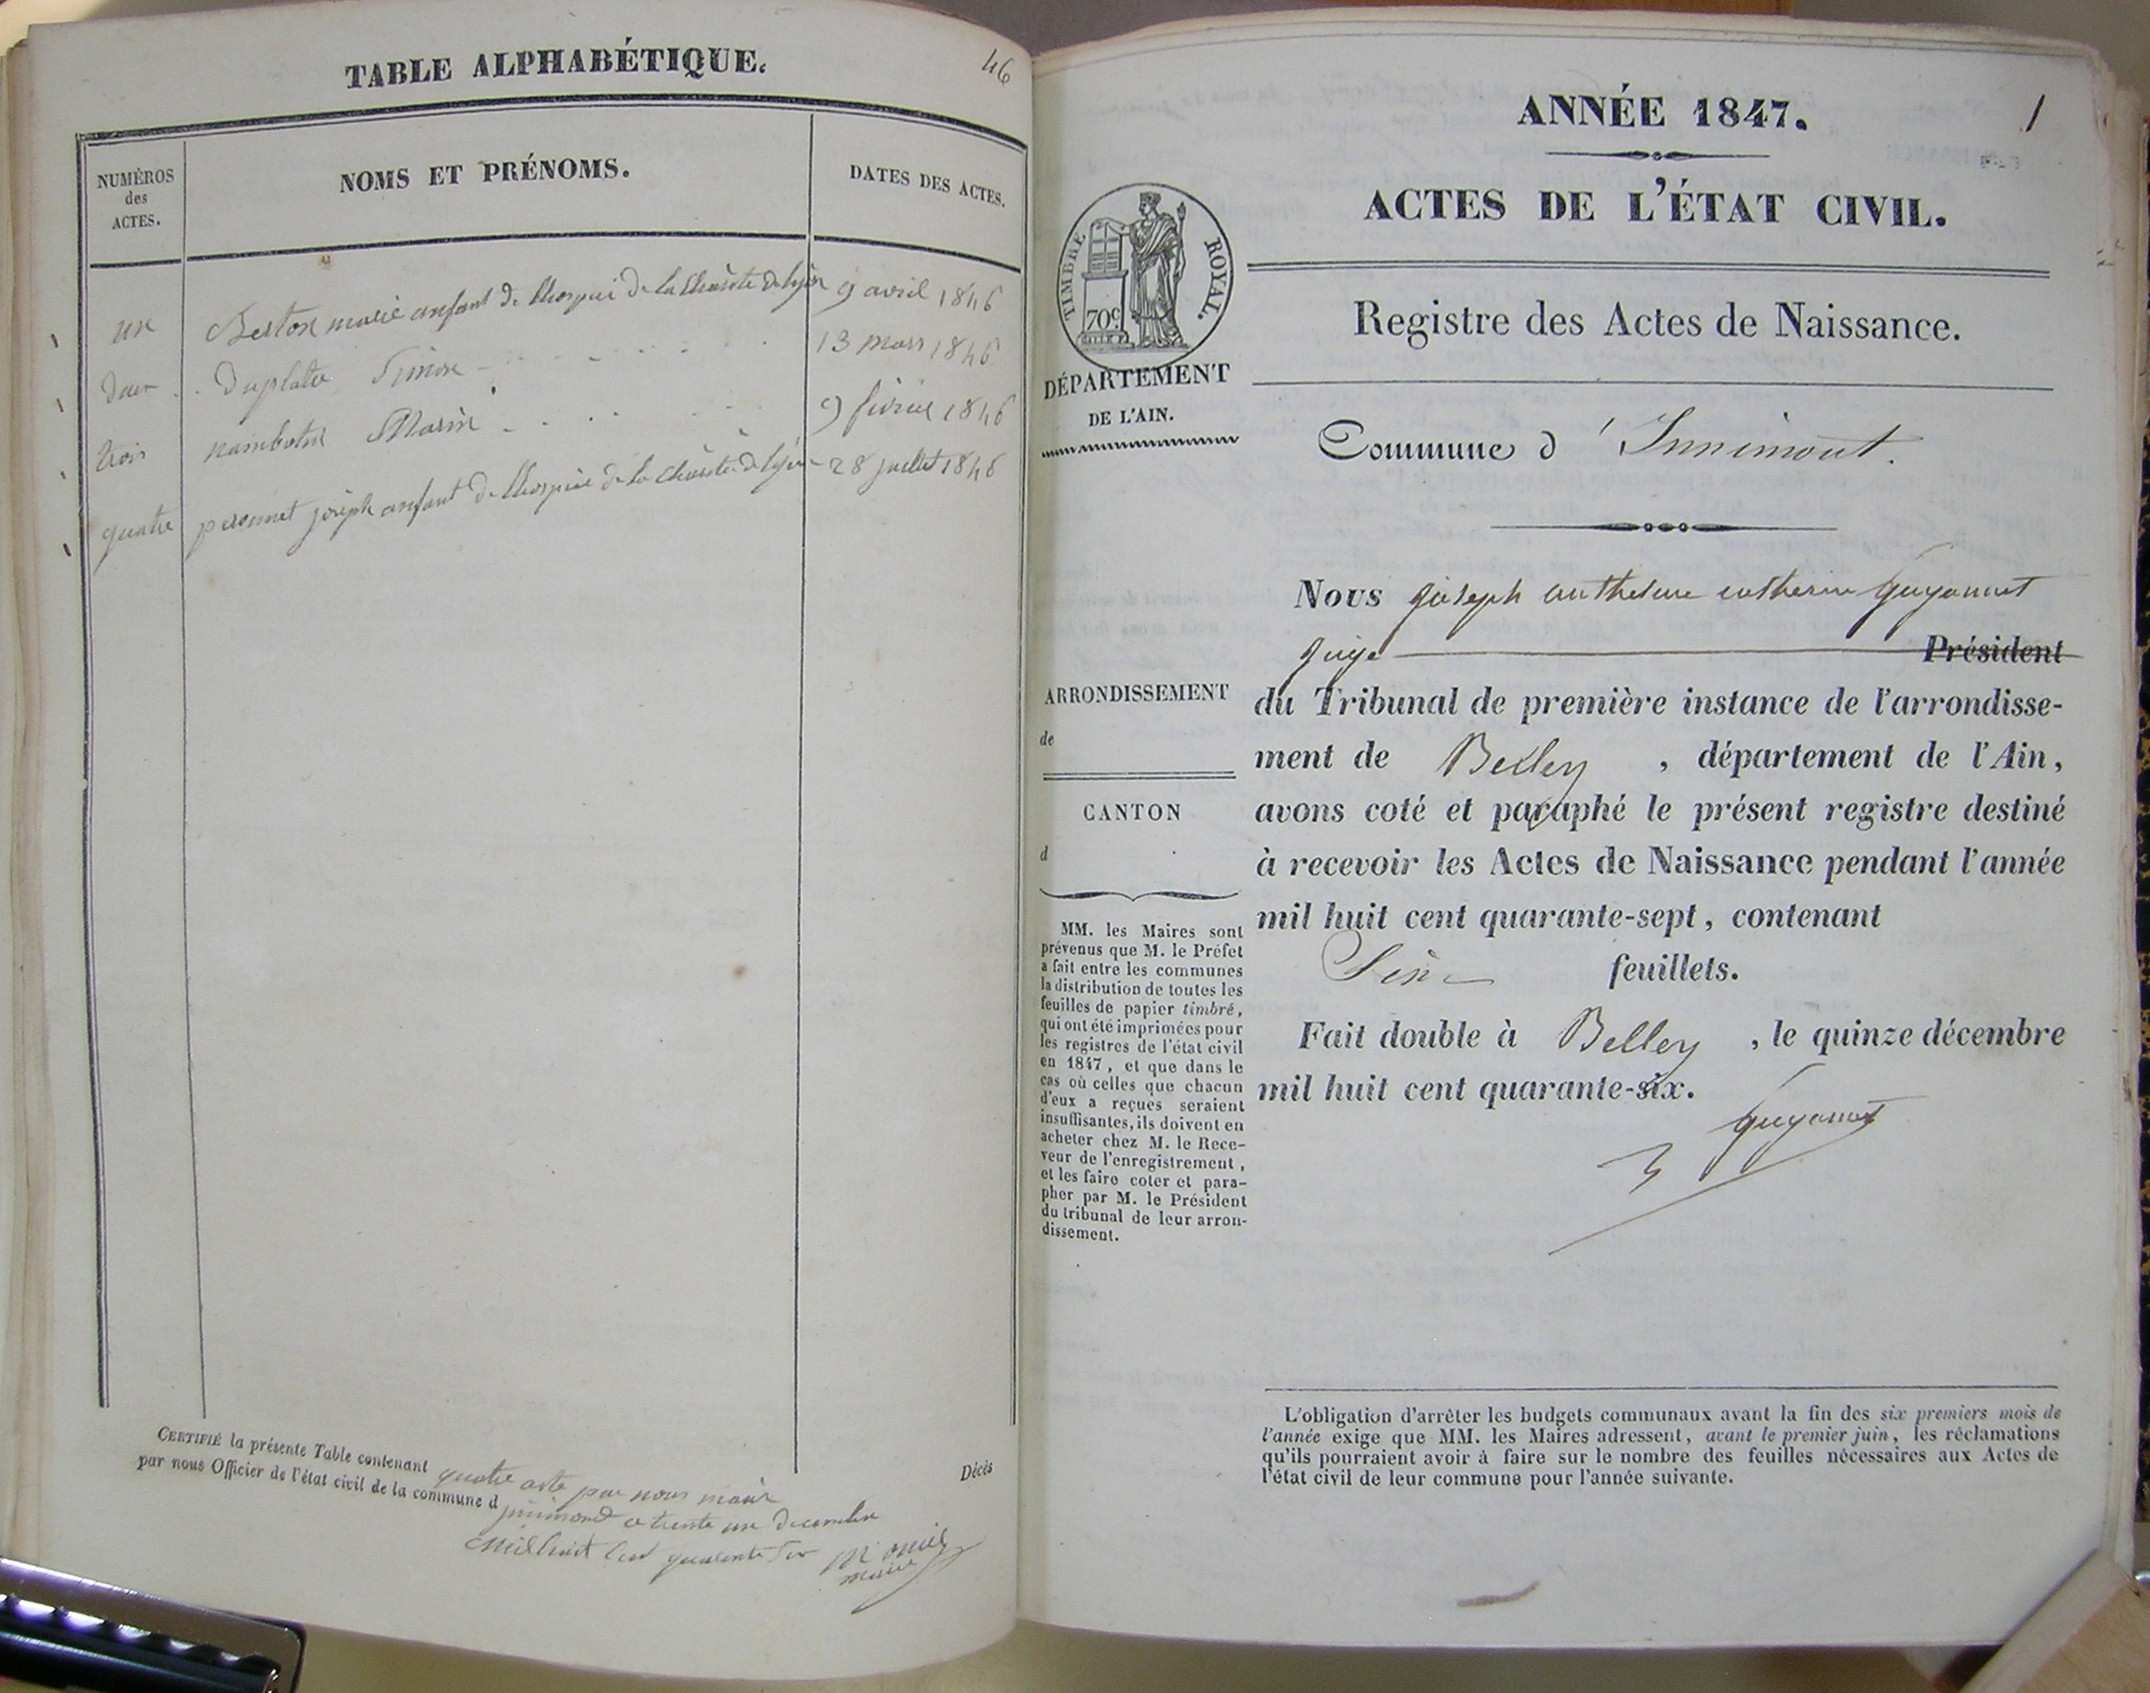 TABLE ALPHABÉTIQUE.
46
NUMÉROS
des
ACTES.
NOMS ET PRÉNOMS.
DATES DES ACTES.
un Berton marie enfant de lhospice de la Charité de lyon 9 avril 1846
deux Duplatre Simon 13 mars 1846
trois Marie 9 février 1846
quatre peronnet joseph enfant de lhospice de la charité de lyon 28 juillet 1846
CERTIFIÉ la présente Table contenant quatre acte par nous maire
par nous Officier de l'état civil de la commune d innimond ce trente un decembre
mil huit cent quarante six
maire
Décès
ANNÉE 1847.
1
ACTES DE L'ÉTAT CIVIL.
TIMBRE ROYAL.
70c
Registre des Actes de Naissance.
DÉPARTEMENT
DE L'AIN.
Commune d'Innimont.
Nous joseph anthelme catherin Guyonnet
juge Président
du Tribunal de première instance de l'arrondisse-
ment de Belley, département de l'Ain,
avons coté et paraphé le présent registre destiné
à recevoir les Actes de Naissance pendant l'année
mil huit cent quarante-sept, contenant
feuillets.
Fait double à Belley, le quinze décembre
mil huit cent quarante-six.
Guyonnet
ARRONDISSEMENT
de
CANTON
d
MM. les Maires sont
prévenus que M. le Préfet
a fait entre les communes
la distribution de toutes les
feuilles de papier timbré,
qui ont été imprimées pour
les registres de l'état civil
en 1847, et que dans le
cas où celles que chacun
d'eux a reçues seraient
insuffisantes, ils doivent en
acheter chez M. le Rece-
veur de l'enregistrement,
et les faire coter et para-
pher par M. le Président
du tribunal de leur arron-
dissement.
L'obligation d'arrêter les budgets communaux avant la fin des six premiers mois de
l'année exige que MM. les Maires adressent, avant le premier juin, les réclamations
qu'ils pourraient avoir à faire sur le nombre des feuilles nécessaires aux Actes de
l'état civil de leur commune pour l'année suivante.